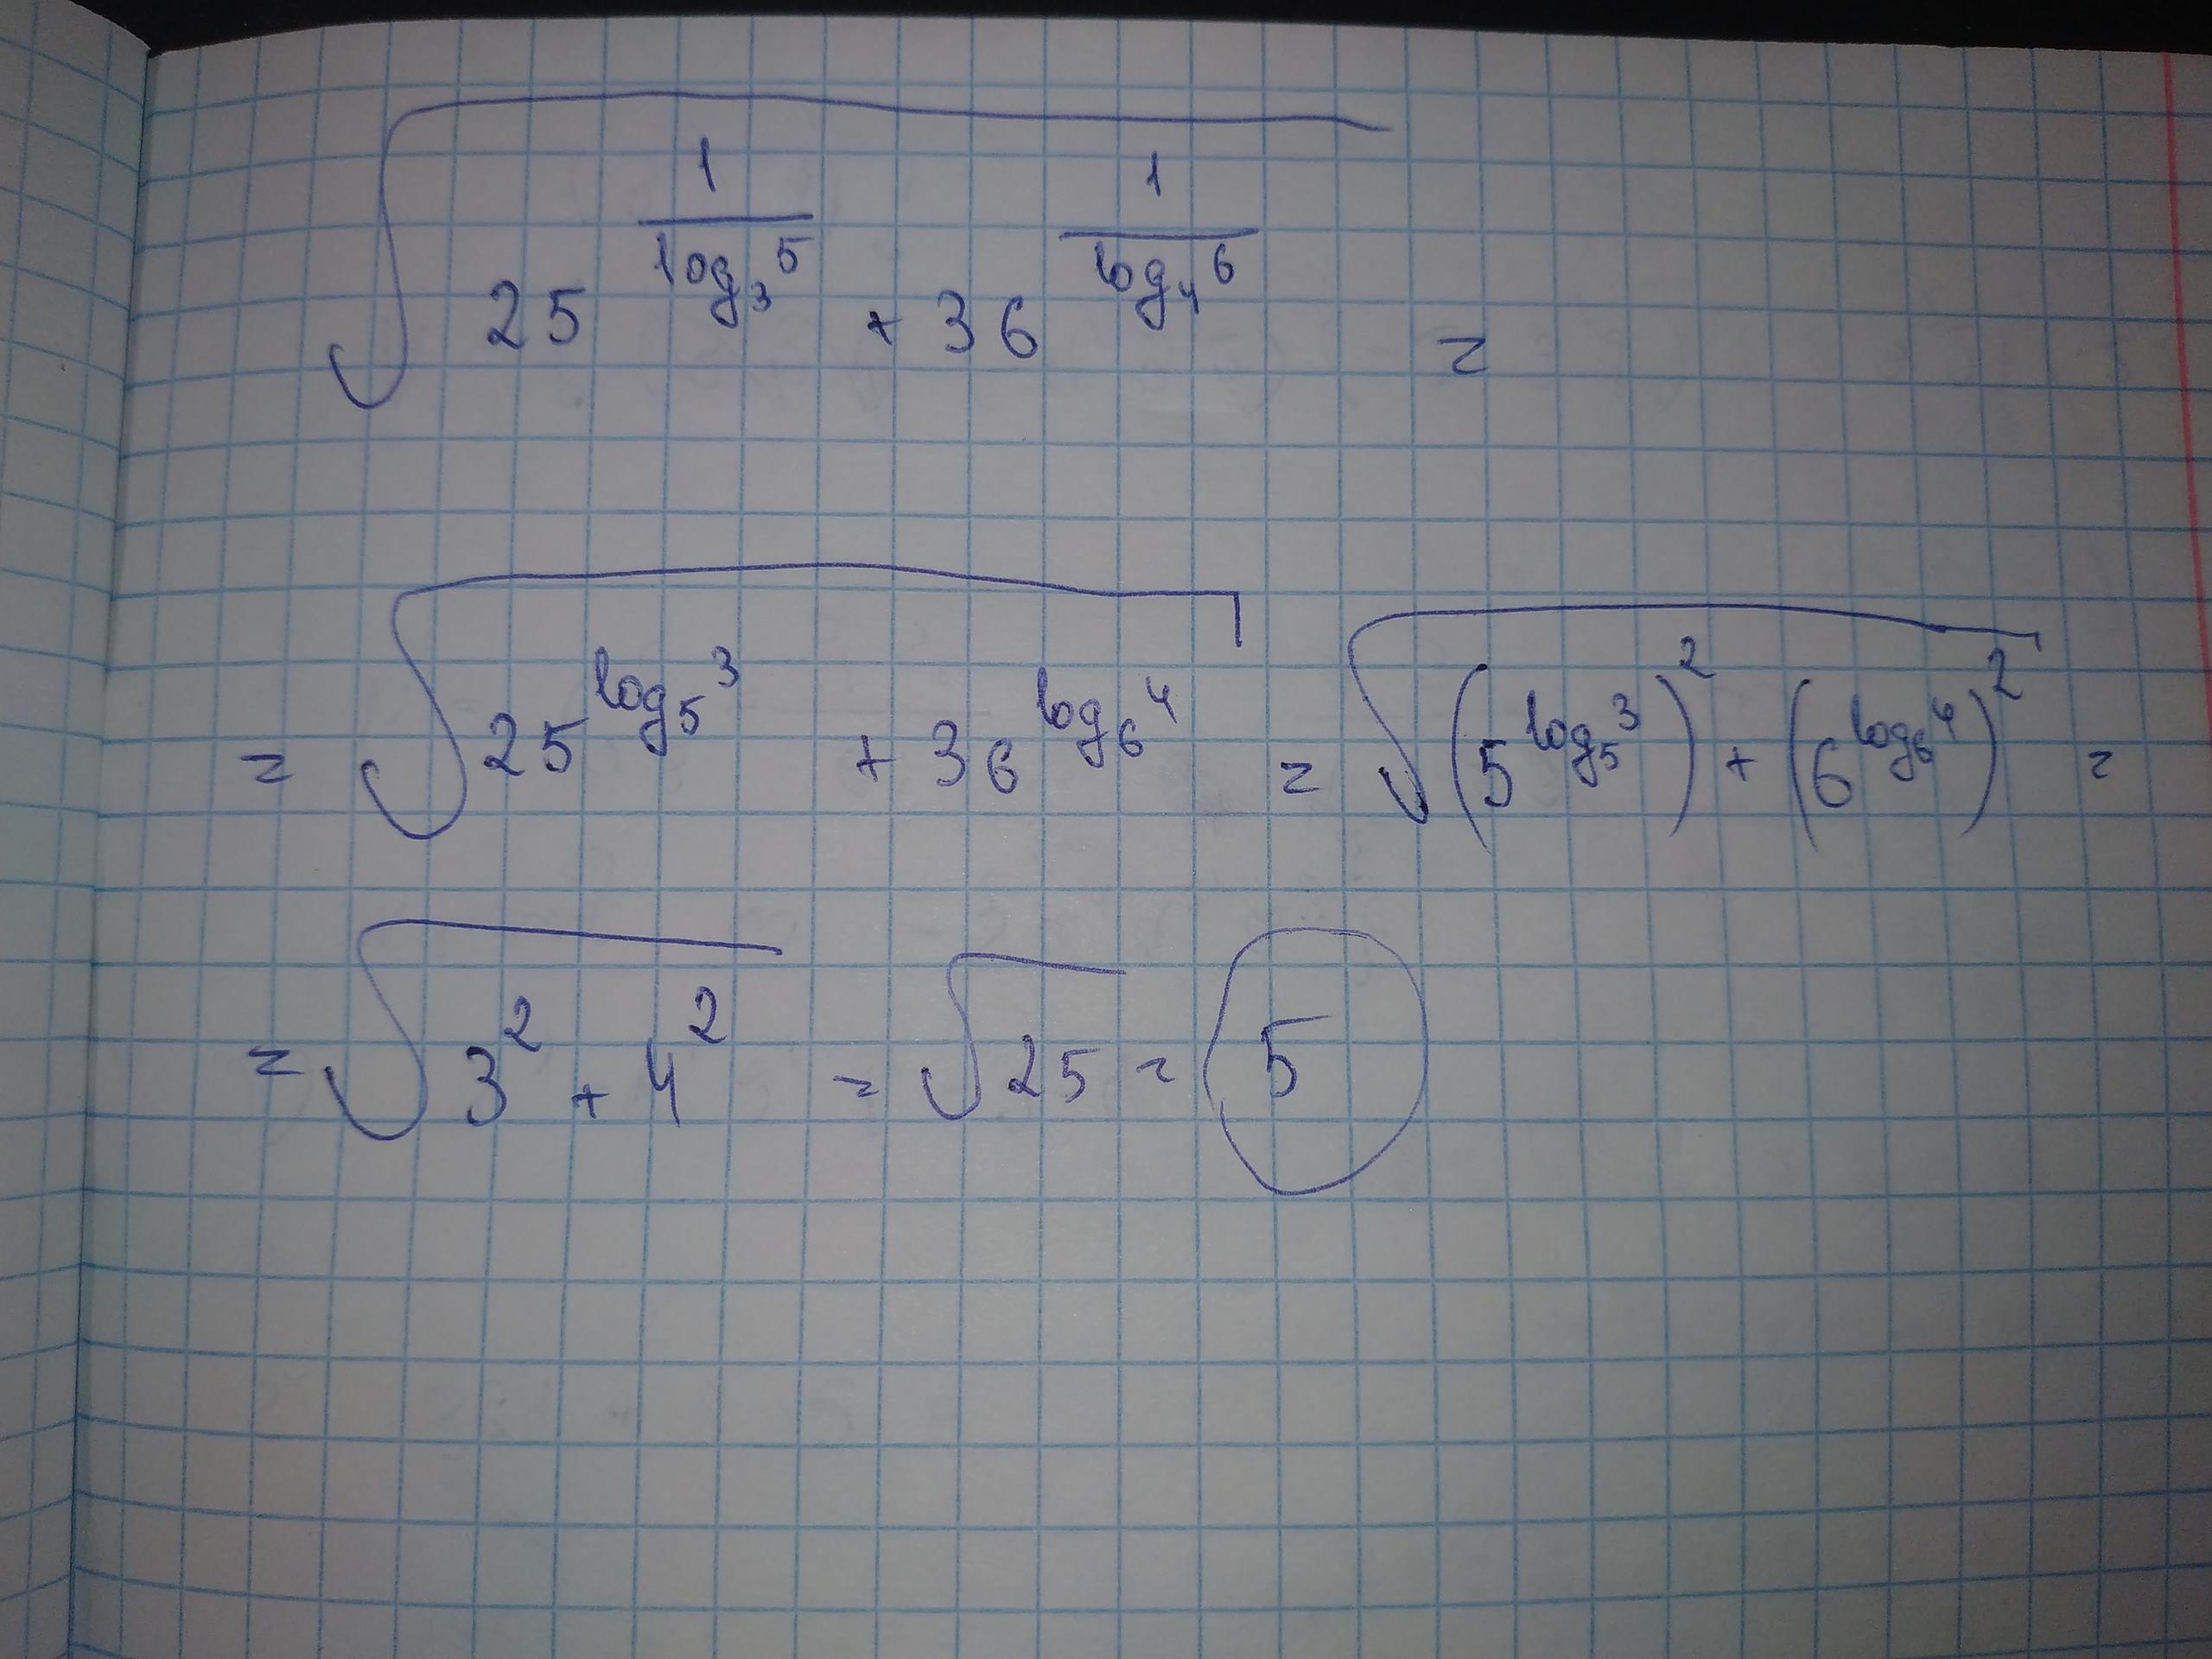 √(25^(1/log₃5) + 36^(1/log₄6)) =
= √(25^(log₅3) + 36^(log₆4)) = √((5^(log₅3))² + (6^(log₆4))²) =
= √(3² + 4²) = √25 = 5